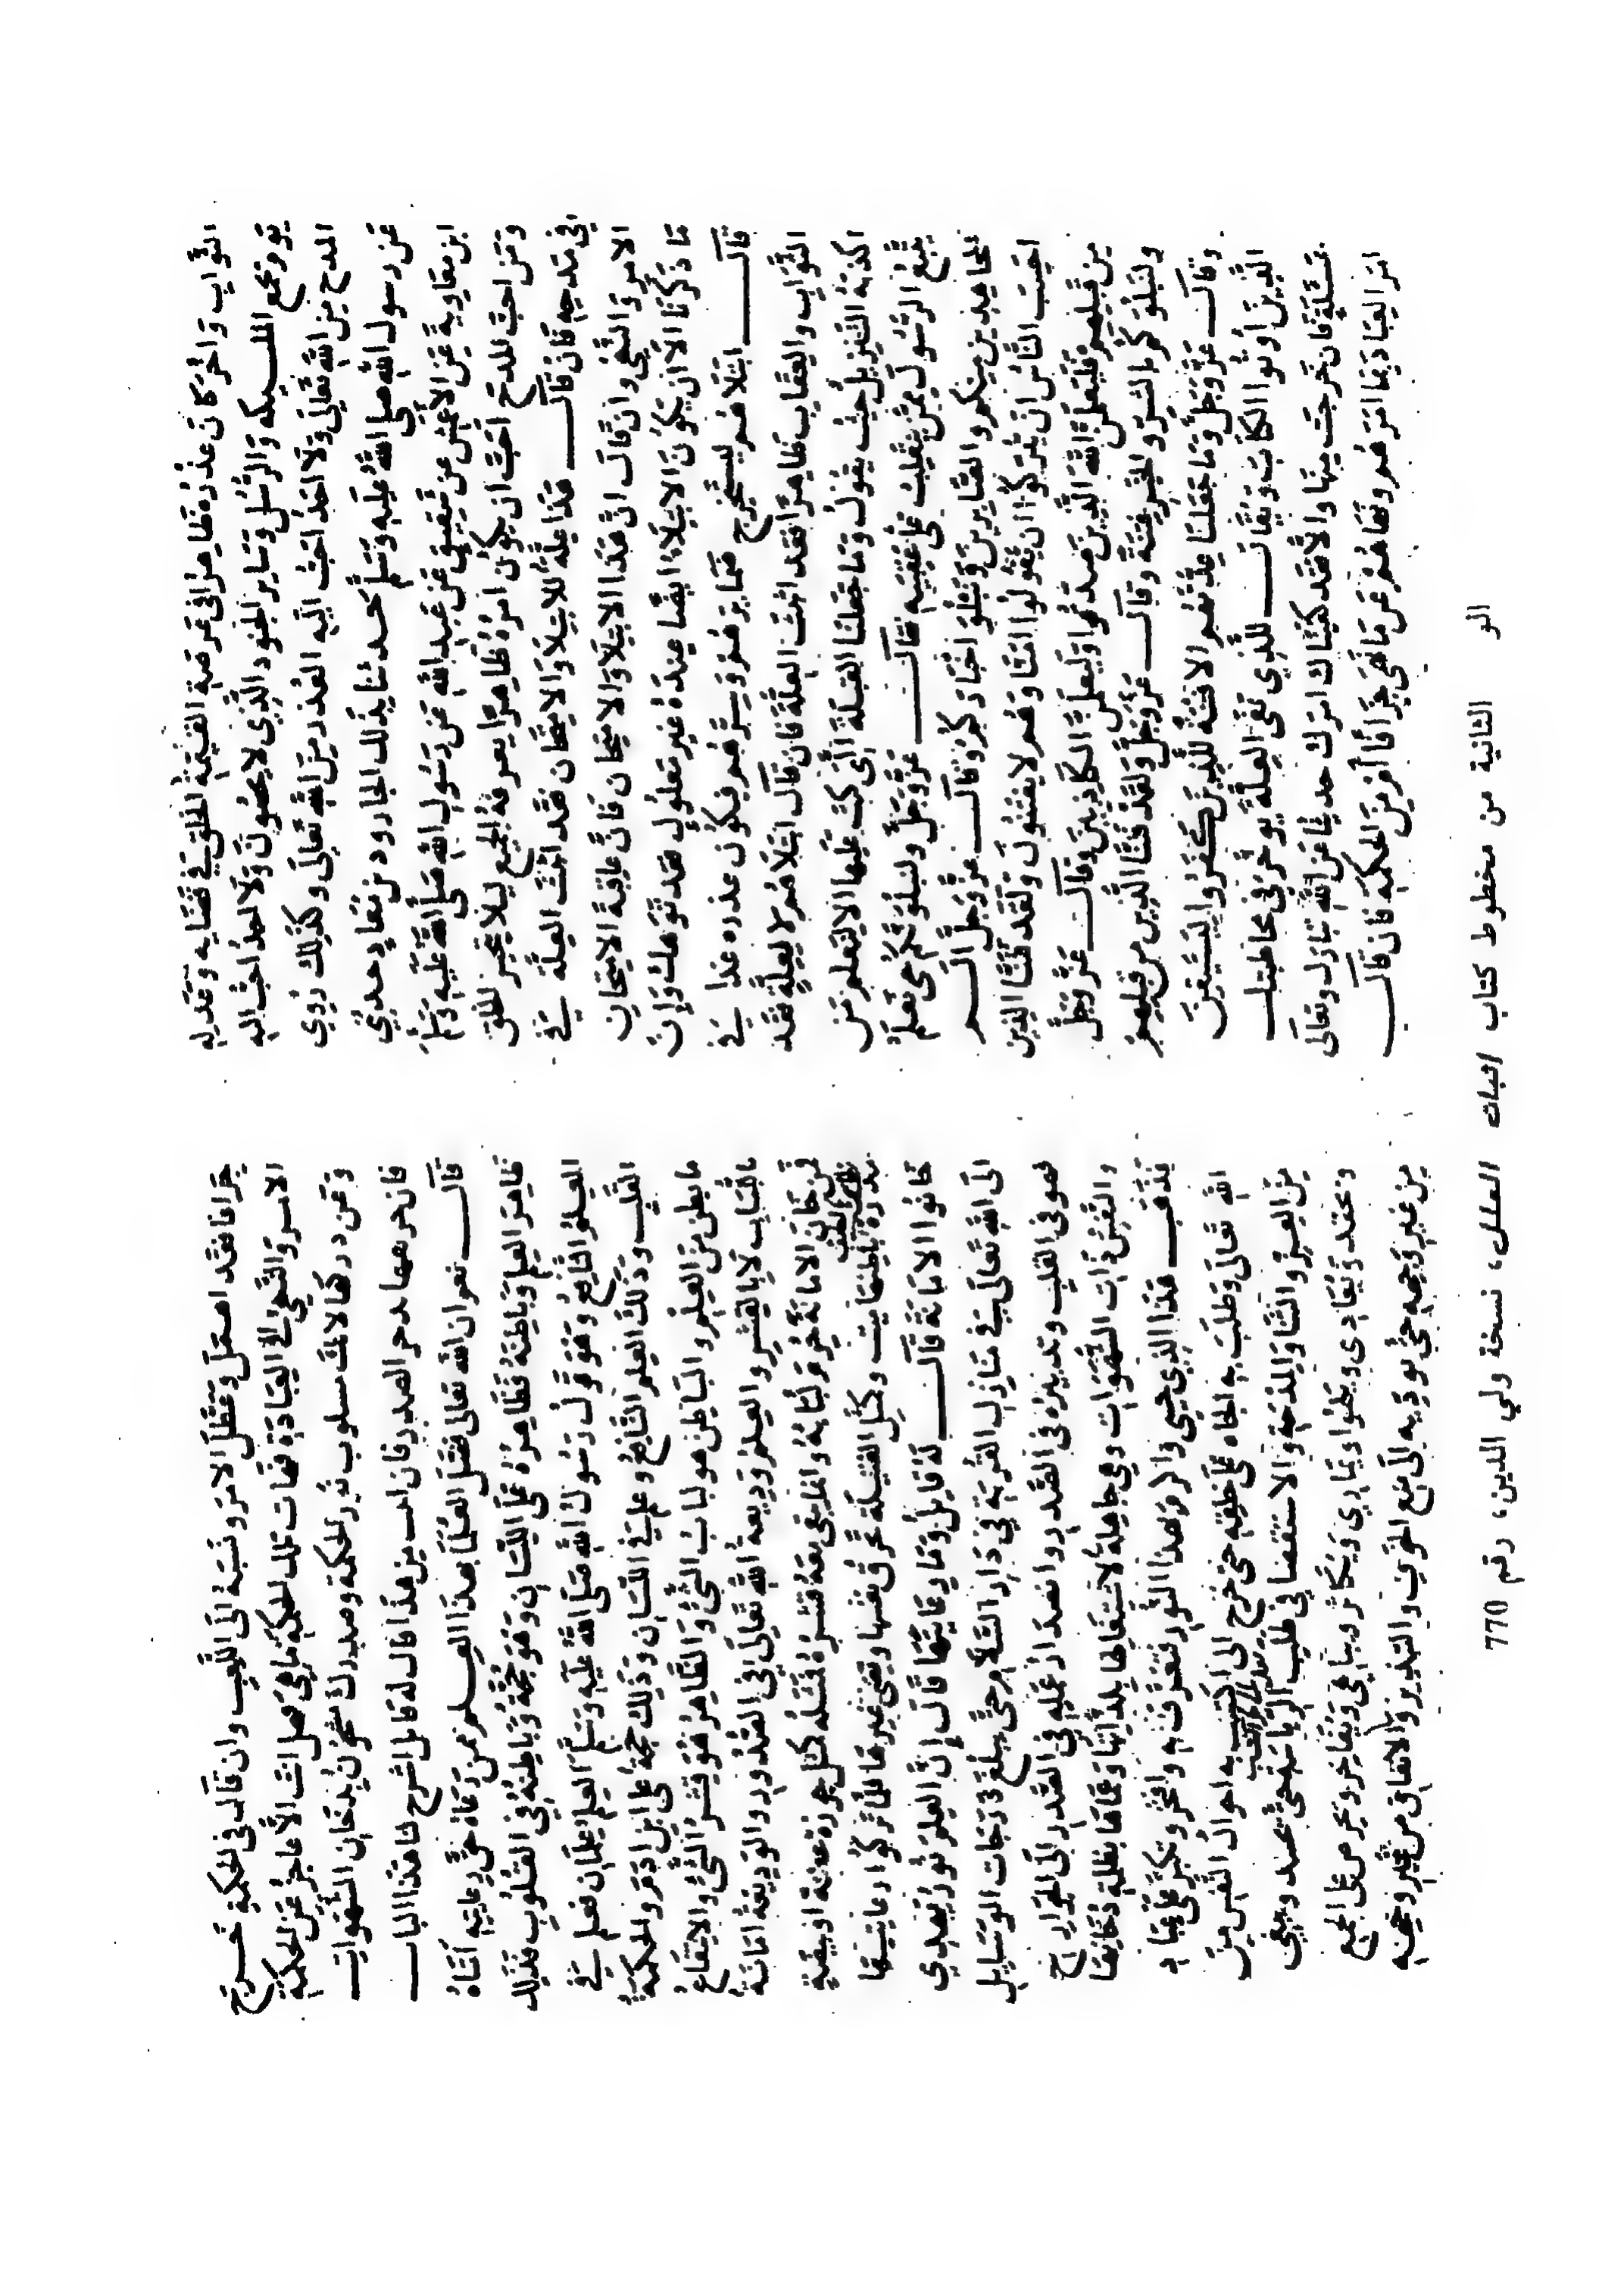 الثواب وآخر كان عذره ظاهرا في عرصة القيمة للخلق في قضايه وعدله
يوم تجمع المليكه والرسل وساير الجنود الذي لا يحصون ولا احد احب اليه
المدح من الله تعالى ولا احد احب اليه العذر من الله تعالى وكذلك روي
عن رسول الله صلى الله عليه وسلم حدثنا بذلك الجارود بن معاد حدثني
ابن معاوية عن الاعمش عن شقيق عن عبد الله عن رسول الله صلى الله عليه وسلم
ومن احب المدح احب ان يكون امره ظاهرا يعرفه الجميع ليلا يتحير للخلق
في مدحه فان قال هذا علة للابتلا والامتحان فقد اثبت العلة في
الامر والنهي وان قال ان هذا الابتلا والامتحان فان عاقبة الامتحان
ما ذكرنا الا ان يكون الابتلاء ايضا عنده غير معلول فقد توهمت وان
قال ابتلاهم ليستخرج ضمايرهم وسرهم فيكون عذره غدا في
الثواب والعقاب ظاهرا فقد اثبت العلة فان قال ابتلاهم لا لعلة فقد
اكذبه التنزيل حيث يقول وما جعلنا القبلة التي كنت عليها الا لنعلم من
يتبع الرسول ممن ينقلب على عقبيه وقال عز وجل ولنبلونكم حتى نعلم
المجاهدين منكم والصابرين ونبلو اخباركم وقال عز وجل الم
احسب الناس ان يتركوا ان يقولوا امنا وهم لا يفتنون ولقد فتنا الذين
من قبلهم فليعلمن الله الذين صدقوا وليعلمن الكاذبين وقال عز وجل
ولنبلوكم بالشر والخير فتنة وقال عز وجل ولقد فتنا الذين من قبلهم
وقال عز وجل وما جعلنا عدتهم الا فتنة للذين كفروا ليستيقن
الذين أوتوا الكتاب ويقال للذي نفى العلة في مخاطبتك
بمسئلة فان خرجت منها والا فقد كفيناك امرك حدثنا عن الله تبارك وتعالى
امر العباد بما امرهم ونهاهم عن ما نهى جزافا أم من الحكمة فان قال
جزافا فقد اهمل وعطل الامر ونسبه الى اللعب وان قال في الحكمة خرج
الامر والنهي الى العباده فهات تلك الحكمة ما هي هل انت الا عاجز عن الحكمة
وعن دركها لانك مسلوب نور الحكمة وصدرك مشحون بدخان الشهوات
قال له قايل اشرح لنا هذا الباب
قال نعم ان الله تعالى فضل العلما بهذا العلم ممن دعاه حق رعايته أتاه
ظاهر العلم وباطنه فظاهره على اللسان وهو حجة وباطنه في القلوب فذلك
العلم النافع وهو قول رسول الله صلى الله عليه وسلم العلم علمان فعلم في
القلب وذلك العلم النافع وعلم في اللسان وذلك حجة على ابن ادم والحكمة
ما بطن من العلم والباطن هو لباب الشي والظاهر هو قشر الشي والانتفاع
باللباب لا بالقشر والعلم وديعة الله تعالى في الصدور والوديعة امانة
فمن خان الامانة حرم لبابه وانما بقي معه قشره فمثله كمثل جوزة عفنة
وكمثل الفتيلة تحرق نفسها وتضيء غيرها فلما تركوا رعايتها
خانوا الامانة قال له قايل وما رعايتها قال إن العلم نور يهدي
الى الله تعالى في منازل القربة في دار السلام حتى يبلغ درجات الوسايل
فهو في القلب وتدبيره في الصدر وانفذ اعماله في الصدر الى الجوارح
والنفس ذات الشهوات وهي جاهلة بلذاتها بظلمة دخانها
هذا الذي حيي قلبه بهذا النور وافتخر وتكبر على عباد
الله تعالى وطلب به الجاه على خلقه حتى خرج الى اكتسابه احوال النفس من
من العز والثنا والمدحة والاستقصا في طلب الرياسة حتى يحسد ويبغي
ويحقد ويعادي ويعلوا ويماري ويكاثر ويباهي ويفاخر ويحرص على الجمع
من غير وجهه حتى يوديه الى منع الحق والتبذير والانفاق من غير وجهه
الو الثانية من مخطوط كتاب اثبات العلل، نسخة ولي الدين، رقم 770